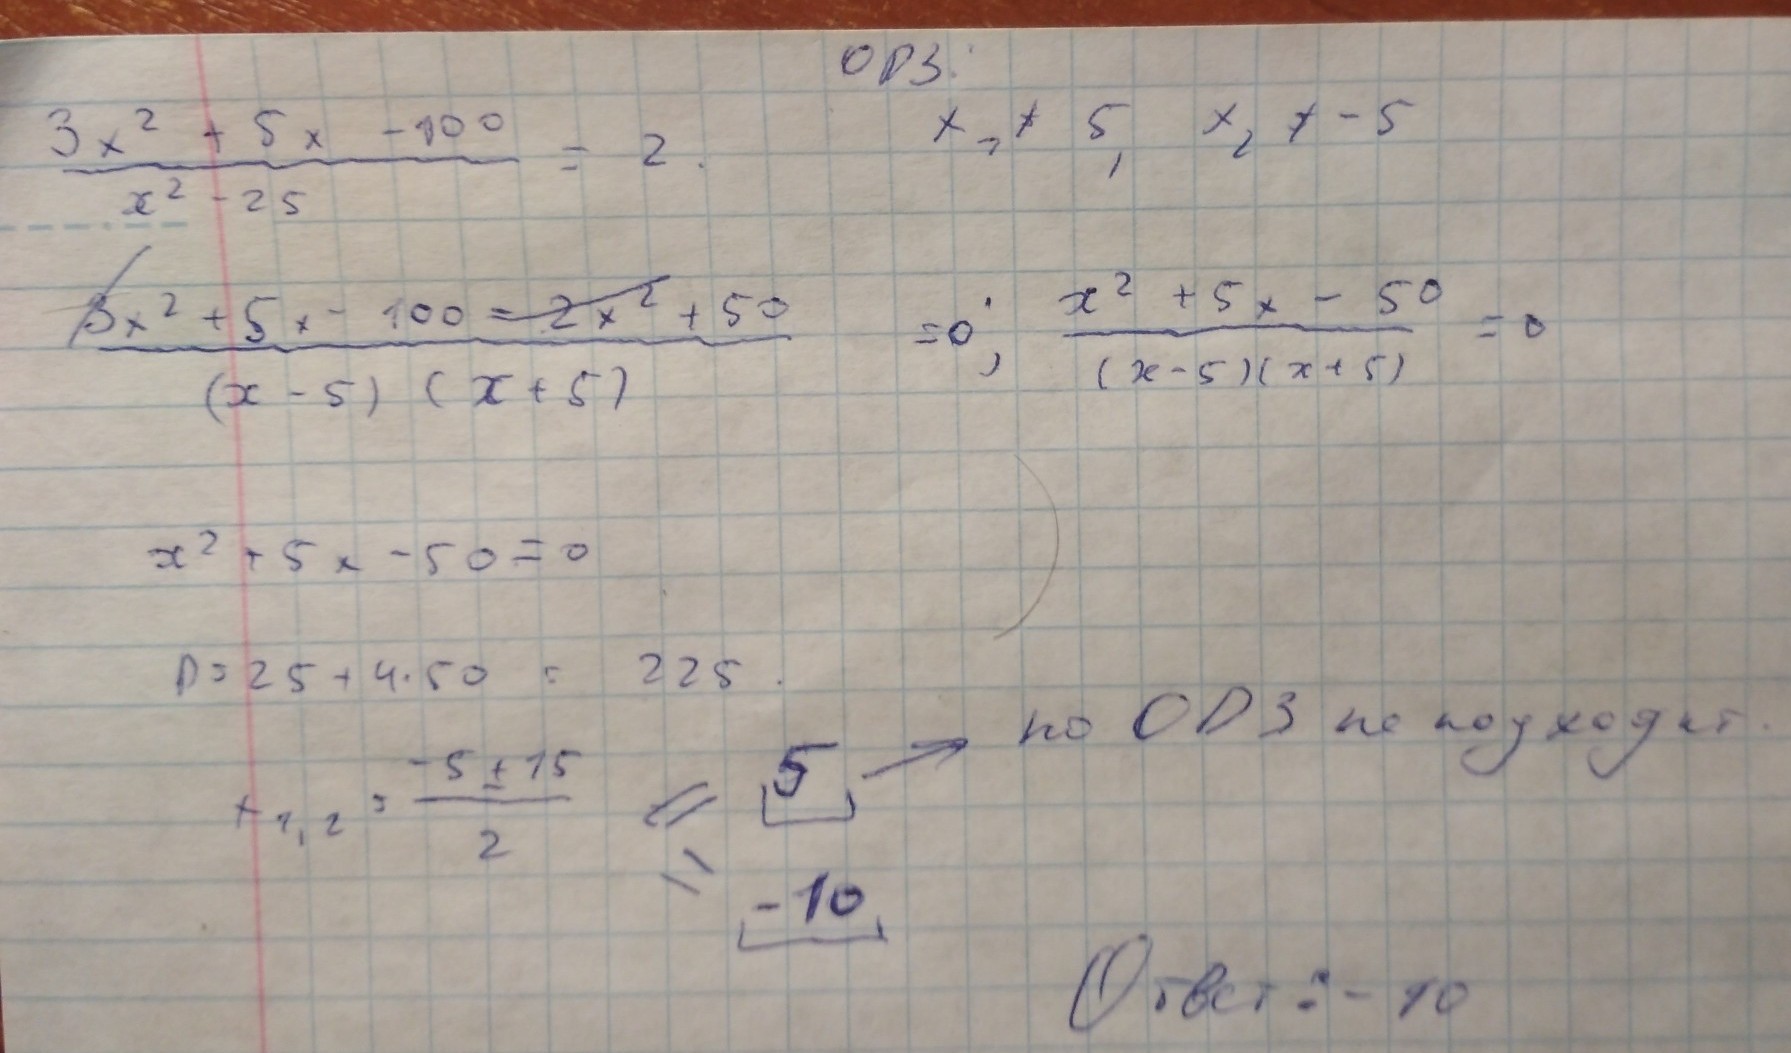 ОДЗ:
3x² + 5x - 100 / x² - 25 = 2.
x₁ ≠ 5, x₂ ≠ -5
3x² + 5x - 100 - 2x² + 50 / (x - 5) (x + 5) = 0; x² + 5x - 50 / (x - 5)(x + 5) = 0
x² + 5x - 50 = 0
D = 25 + 4·50 = 225.
x₁,₂ = -5 ± 15 / 2 = 5 → по ОДЗ не подходит.
= -10
Ответ: -10